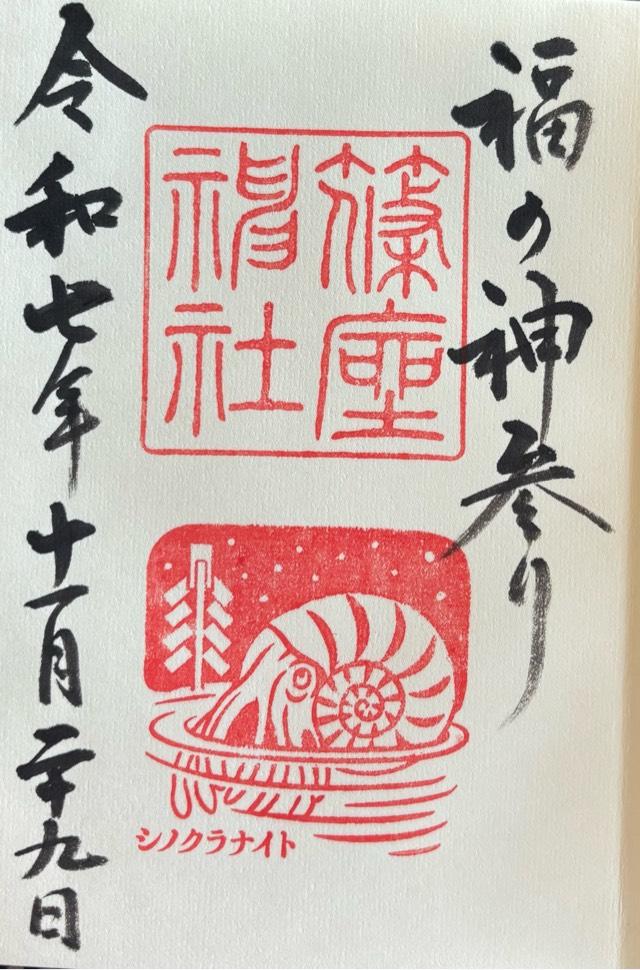 福の神参り
篠座
神社
シノクラナイト
令和七年十一月二十九日